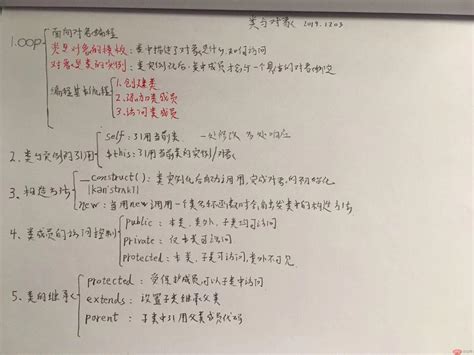 类与对象 2019.1203
面向对象编程
1.OOP
类是对象的模板：类中描述了对象是什么，如何访问
对象是类的实例：类实例化后，类中成员才名
编程基本流程
1.创建类
2.添加类成员
3.访问类成员
self：引用当前类 一处修改 多处响应
2.类与实例的引用
$this：引用当前类的实例/对象
__construct()：类实例化后自动调用，完成对象的初始化
3.构造方法
|kən'strʌkt|
new：当用new调用一个类名
public：本类，类外，子类均可访问
4、类成员的访问控制
private：仅本类可访问
protected：本类，子类可访问，类外不可见
protected：受保护成员可以子类中访问
5、类的继承
extends：设置子类继承父类
parent：子类中引用父类成员代码